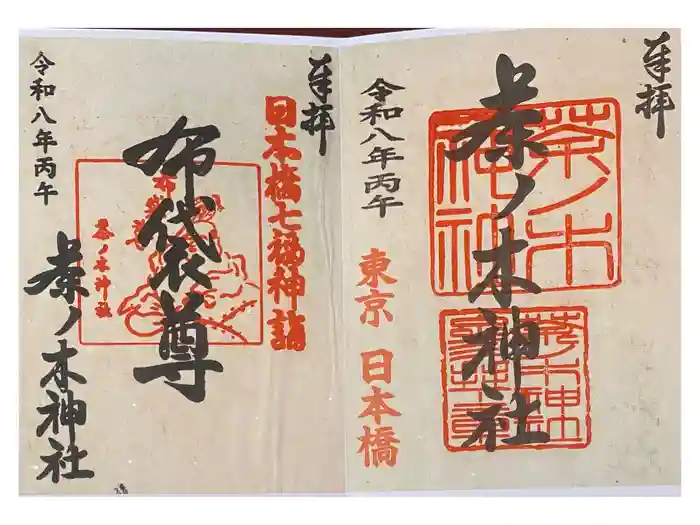 奉拝
茶ノ木神社
茶ノ木
神社
東京 日本橋
令和八年丙午
奉拝
日本橋七福神詣
布袋尊
茶ノ木神社
令和八年丙午
茶ノ木神社